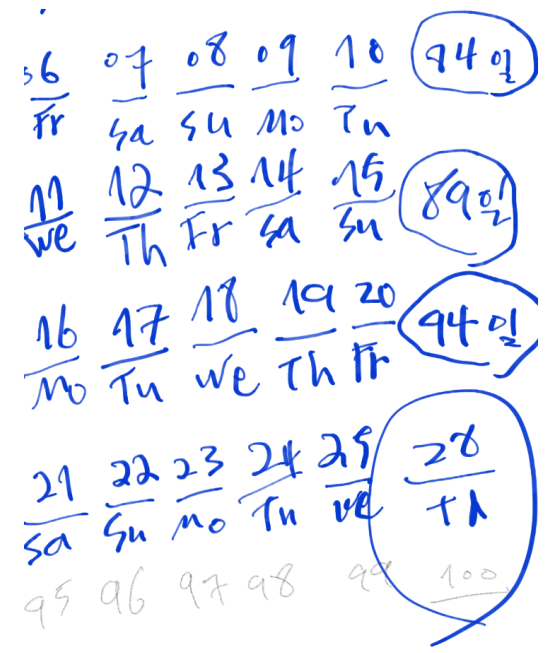 06 07 08 09 10 94일
Fr Sa Su Mo Tu
11 12 13 14 15 89일
We Th Fr Sa Su
16 17 18 19 20 94일
Mo Tu We Th Fr
21 22 23 24 25 28
Sa Su Mo Tu We Th
95 96 97 98 99 100